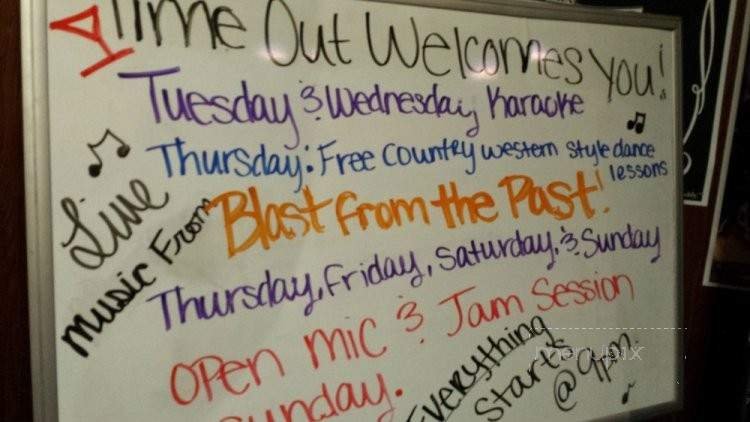 A Time Out Welcomes You!
Tuesday & Wednesday Karaoke
Thursday: Free Country western style dance
lessons
Live
Music From
Blast from the Past!
Thursday, Friday, Saturday, & Sunday
Open mic & Jam Session
Sunday.
Everything
Starts
@ 9pm.
menupix